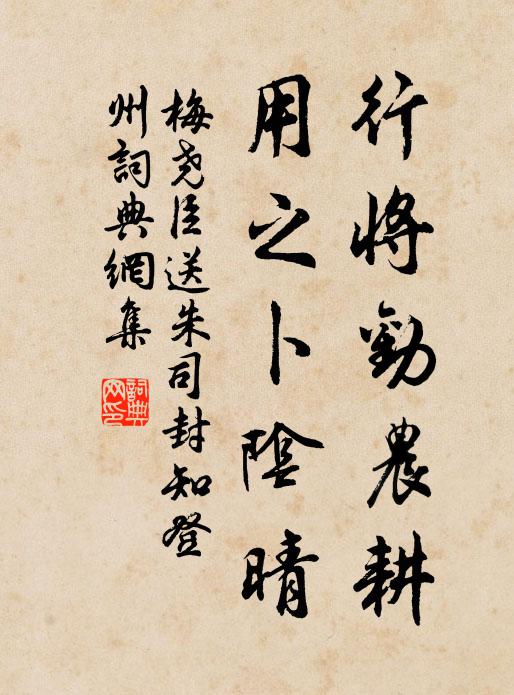 行將勸農耕
用之卜陰晴
梅堯臣送朱司封知登
州詞典網集
詞典
网印